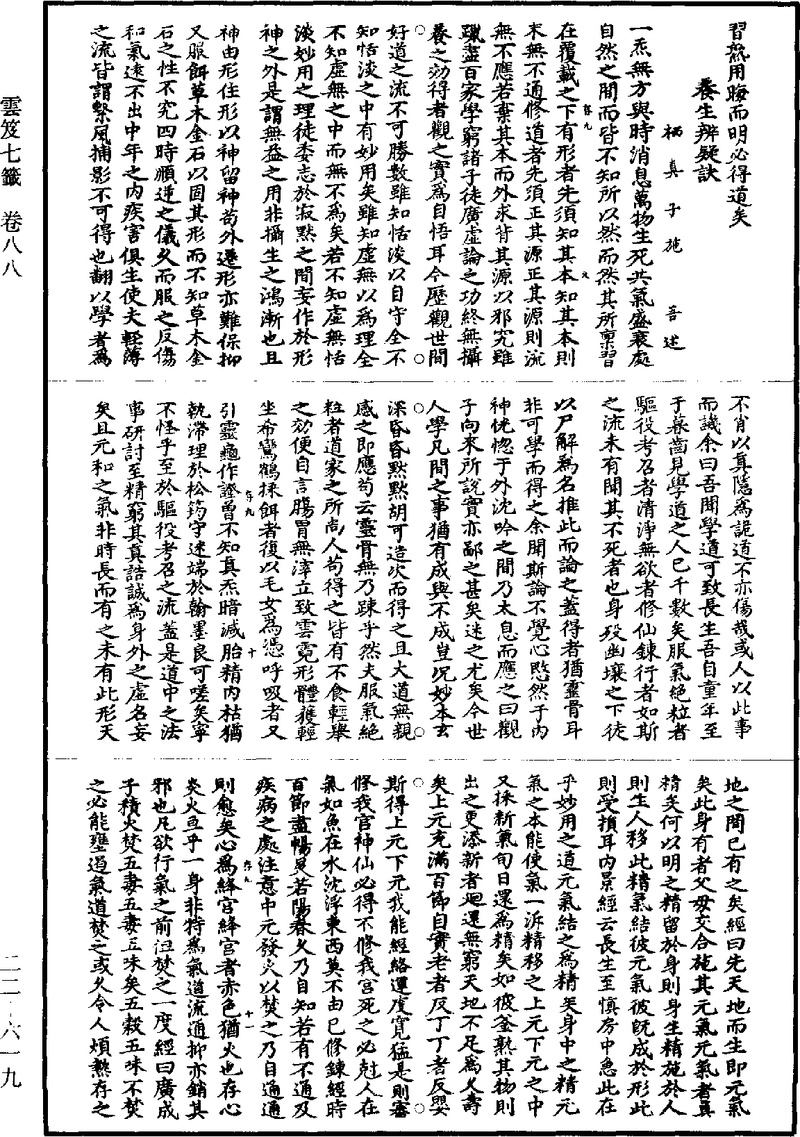 習熬用晦而明必得道矣
養生辨疑訣
栖真子施肩吾述
一炁無方與時消息萬物生死共氣盛衰處
自然之間而皆不知所以然而然其所稟習
在覆載之下有形者先須知其本知其本則
求無不通修道者先須正其源正其源則流
無不應若棄其本而外求背其源以邪究雖
躐盡百家學窮諸子徒廣虛論之功終無攝
養之効得者觀之實為自悟耳今歷觀世間
好道之流不可勝數雖知恬淡以自守全不
知恬淡之中有妙用矣雖知虛無以為理全
不知虛無之中而無不為矣若不知虛無恬
淡妙用之理徒委志於寂默之間妄作於形
神之外是謂無益之用非攝生之鴻漸也且
神由形住形以神留神苟外遷形亦難保抑
又服餌草木金石以固其形而不知草木金
石之性不究四時順逆之儀久而服之反傷
和氣遠不出中年之內疾害俱生使夫輕薄
之流皆謂繫風捕影不可得也翻以學者為
雲笈七籤 卷八八
不肖以真隱為詭道不亦傷哉或人以此事
而譏余曰吾聞學道可致長生吾自童年至
于暮齒見學道之人已千數矣服氣絕粒者
驅役考召者清淨無欲者修仙鍊行者如斯
之流未有聞其不死者也身歿幽壤之下徒
以尸解為名推此而論之蓋得者猶靈骨耳
非可學而得之余聞斯論不覺心愍然于內
神恍惚于外沈吟之間乃太息而應之曰觀
子向來所說實亦鄙之甚矣迷之尤矣今世
人學凡間之事猶有成與不成豈況妙本玄
深昏昏默默胡可造次而得之且大道無親
感之即應苟云靈骨無乃疎乎然夫服氣絕
粒者道家之所尚人苟得之皆有不食輕舉
之効便自言腸胃無滓立致雲霓形體獲輕
坐希鸞鶴採餌者復以毛女為憑呼吸者又
引靈龜作證曾不知真炁暗減胎精內枯猶
執滯理於松筠守迷端於翰墨良可嗟矣寧
不怪乎至於驅役考召之流蓋是道中之法
事研討至精窮其真誥誠為身外之虛名妄
矣且元和之氣非時長而有之未有此形天
地之間已有之矣經曰先天地而生即元氣
矣此身有者父母交合施其元氣元氣者真
精矣何以明之精留於身則身生精施於人
則生人移此精氣結彼元氣彼既成於形此
則受損耳內景經云長生至慎房中急此在
乎妙用之道元氣結之為精矣身中之精元
氣之本能使氣一泝精移之上元下元之中
又採新氣旬日還為精矣如彼釜熟其物則
出之更添新者迴運無窮天地不足為久壽
矣上元充滿百節自實老者反丁丁者反嬰
斯得上元下元我能經絡運度寬猛是則審
修我宮神仙必得不修我宮死之必尅人在
氣如魚在水沈浮東西莫不由已修鍊經時
百節盡暢炅若陽春久乃自知若有不通及
疾病之處注意中元發火以焚之乃自通通
則愈矣心為絳宮絳宮者赤色猶火也存心
炎火亘乎一身非特為氣道流通抑亦銷其
邪也凡欲行氣之前但焚之一度經曰廣成
子積火焚五毒五毒五味矣五穀五味不焚
之必能壅遏氣道焚之或久令人煩熱存之
二二-六一九